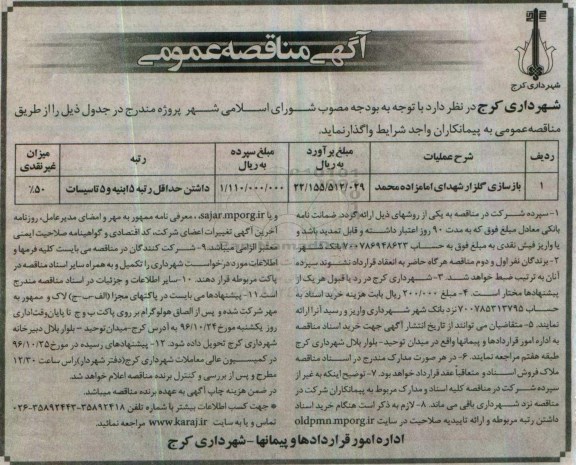 آگهی مناقصه عمومی
شهرداری کرج
شهرداری کرج در نظر دارد با توجه به بودجه مصوب شورای اسلامی شهر پروژه مندرج در جدول ذیل را از طریق
مناقصه عمومی به پیمانکاران واجد شرایط واگذار نماید.
ردیف شرح عملیات مبلغ برآورد به ریال مبلغ سپرده به ریال رتبه میزان غیر نقدی
۱ بازسازی گلزار شهدای امامزاده محمد ۲۲/۱۵۵/۵۱۲/۰۲۹ ۱/۱۱۰/۰۰۰/۰۰۰ داشتن حداقل رتبه ۵ ابنیه و ۵ تاسیسات ۵۰٪
۱- سپرده شرکت در مناقصه به یکی از روشهای ذیل ارائه گردد. ضمانت نامه
بانکی معادل مبلغ فوق که به مدت ۹۰ روز اعتبار داشته و قابل تمدید باشد و
یا واریز فیش نقدی به مبلغ فوق به حساب ۷۰۰۷۸۶۹۴۸۶۲۳ بانک شهر
۲- برندگان نفر اول و دوم مناقصه هرگاه حاضر به انعقاد قرارداد نشوند سپرده
آنان به ترتیب ضبط خواهد شد. ۳- شهرداری کرج در رد یا قبول هر یک از
پیشنهادها مختار است. ۴- مبلغ ۲۰۰/۰۰۰ ریال بابت هزینه خرید اسناد به
حساب ۷۰۰۷۸۵۳۱۳۷۹۵ نزد بانک شهر شهرداری واریز و رسید آنرا ارائه
نمایند. ۵- متقاضیان می توانند از تاریخ انتشار آگهی جهت خرید اسناد مناقصه
به اداره امور قراردادها و پیمانها واقع در میدان توحید - بلوار بلال شهرداری کرج
طبقه هفتم مراجعه نمایند. ۶- در هر صورت مدارک مندرج در اسناد مناقصه
ملاک فروش اسناد و متعاقباً عقد قرارداد خواهد بود. ۷- توضیح اینکه به غیر از
سپرده شرکت در مناقصه کلیه اسناد و مدارک مربوط به پیمانکاران شرکت در
مناقصه نزد شهرداری باقی می ماند. ۸- لازم به ذکر است هنگام خرید اسناد
داشتن رتبه مربوطه و ارائه تاییدیه صلاحیت در سایت oldpmn.mporg.ir
و یا sajar.mporg.ir، معرفی نامه ممهور به مهر و امضای مدیرعامل، روزنامه
آخرین آگهی تغییرات اعضای شرکت، کد اقتصادی و گواهینامه صلاحیت ایمنی
معتبر الزامی میباشد. ۹- شرکت کنندگان در مناقصه می بایست کلیه فرمها و
اطلاعات مورد درخواست شهرداری را تکمیل و به همراه سایر اسناد مناقصه در
پاکت مربوطه قرار دهند. ۱۰- سایر اطلاعات و جزئیات در اسناد مناقصه مندرج
است. ۱۱- پیشنهادها می بایست در پاکتهای مجزا (الف-ب-ج) لاک و ممهور به
مهر شرکت شده و پس از الصاق هولوگرام بر روی پاکت ب و ج تا پایان وقت اداری
روز یکشنبه مورخ ۹۶/۱۰/۲۴ به آدرس کرج-میدان توحید - بلوار بلال دبیرخانه
شهرداری کرج تحویل داده شود. ۱۲- پیشنهادهای رسیده در مورخ ۹۶/۱۰/۲۵
در کمیسیون عالی معاملات شهرداری کرج (دفتر شهردار) راس ساعت ۱۲/۳۰
مطرح و پس از بررسی و کنترل برنده مناقصه اعلام خواهد شد.
در ضمن هزینه چاپ آگهی به عهده برنده مناقصه میباشد.
* جهت کسب اطلاعات بیشتر با شماره تلفن ۳۵۸۹۲۴۱۸-۳۵۸۹۲۴۴۳-۰۲۶
تماس و یا به سایت www.karaj.ir مراجعه نمائید.
اداره امور قراردادها و پیمانها-شهرداری کرج